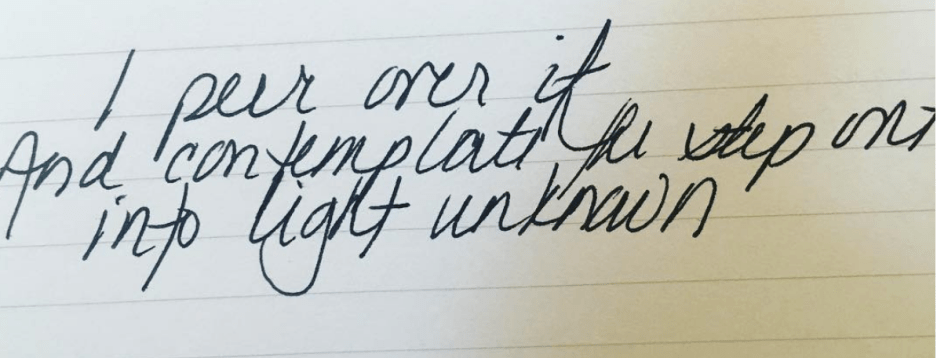 I peer over it
And contemplate the step out
into light unknown